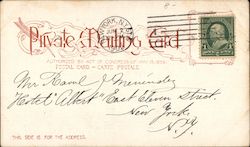 NEW YORK, N.Y.
Private Mailing Card
AUTHORIZED BY ACT OF CONGRESS OF MAY 19, 1898.
POSTAL CARD – CARTE POSTALE
Mr. Raoul J. Menéndez
Hotel Albert East Eleven Street.
New York.
N.Y.
THIS SIDE IS FOR THE ADDRESS.